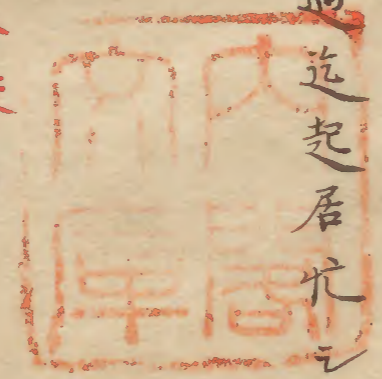 迄起居忙
内閣
文庫